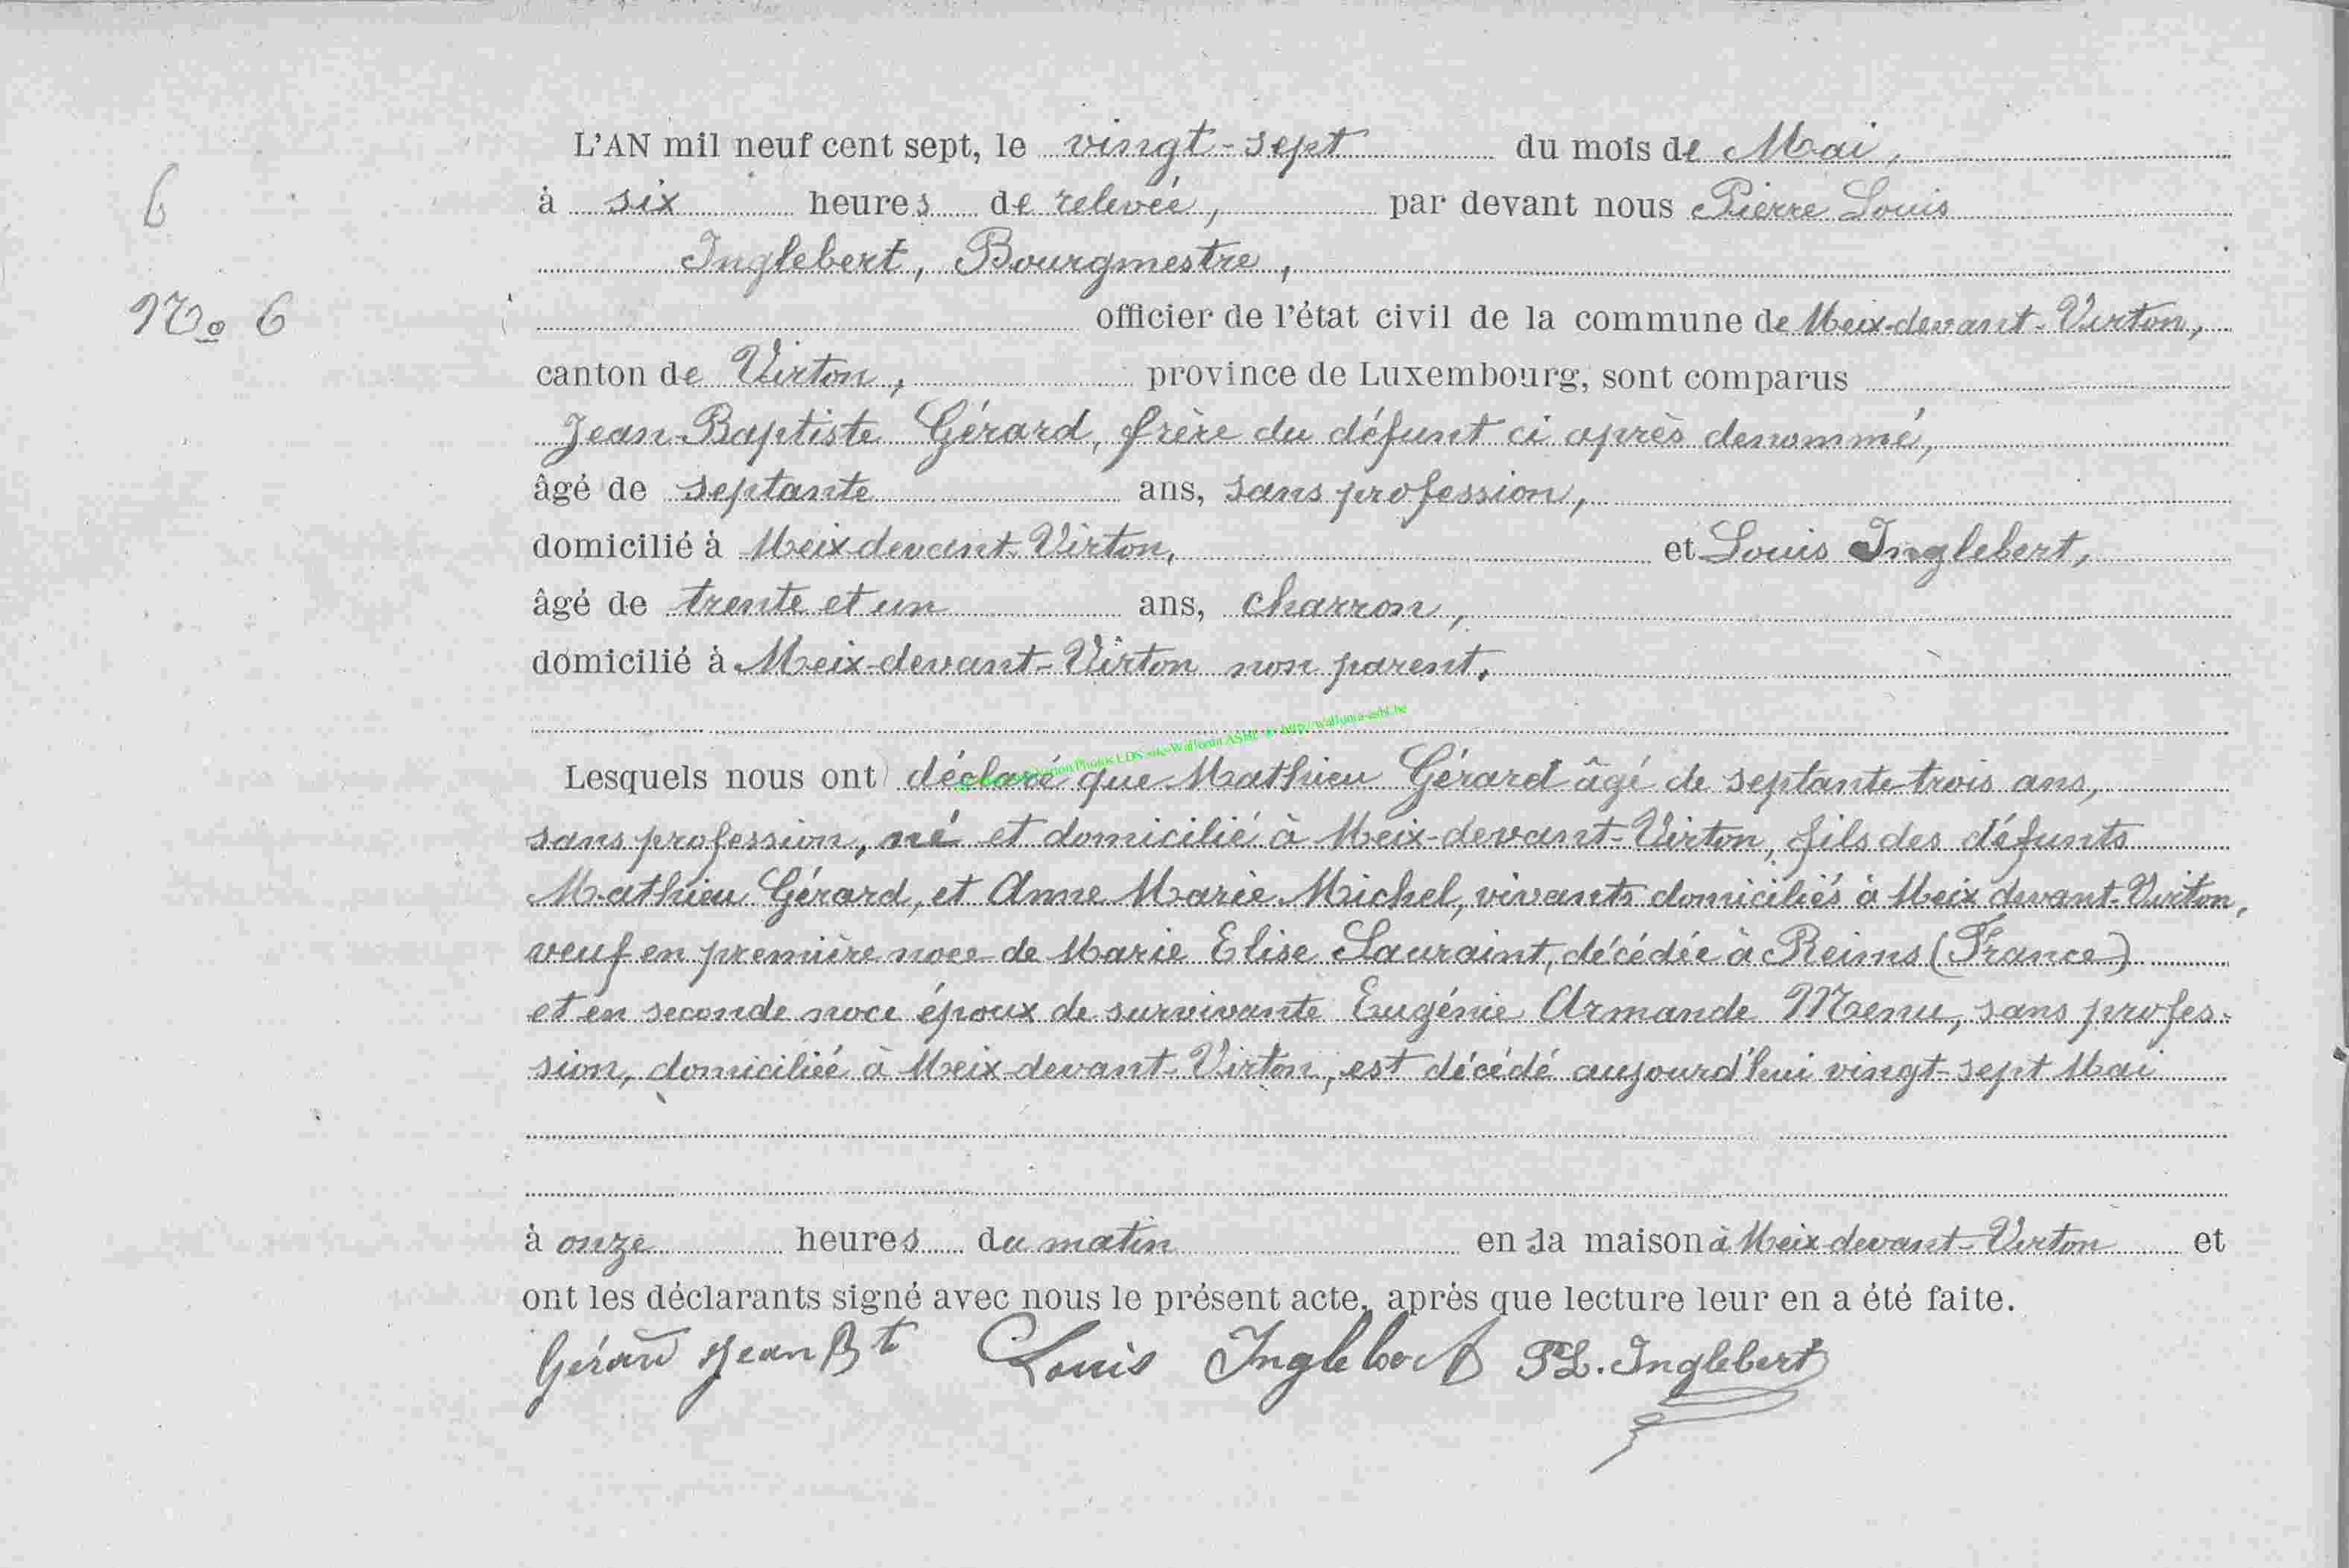 L'AN mil neuf cent sept, le vingt-sept du mois de Mai,
à six heures de relevée, par devant nous Pierre Louis
6
Inglebert, Bourgmestre,
No 6
officier de l'état civil de la commune de Meix-devant-Virton,
canton de Virton, province de Luxembourg, sont comparus
Jean-Baptiste Gérard, frère du défunt ci après denommé,
âgé de septante ans, sans profession,
domicilié à Meix-devant-Virton, et Louis Inglebert,
âgé de trente et un ans, charron,
domicilié à Meix-devant-Virton non parent.
Photos LDS Wallonia ASBL http://wallonia-asbl.be
Lesquels nous ont déclaré que Mathieu Gérard âgé de septante-trois ans,
sans profession, né et domicilié à Meix-devant-Virton, fils des défunts
Mathieu Gérard, et Anne Marie Michel, vivants domiciliés à Meix devant-Virton,
veuf en première noce de Marie Elise Lauraint, décédée à Reims (France)
et en seconde noce époux de survivante Eugénie Armande Menu, sans profes-
sion, domiciliée à Meix-devant-Virton, est décédé aujourd'hui vingt-sept Mai
à onze heures du matin en sa maison à Meix-devant-Virton et
ont les déclarants signé avec nous le présent acte, après que lecture leur en a été faite.
Gérard Jean Bt Louis Inglebert PL. Inglebert